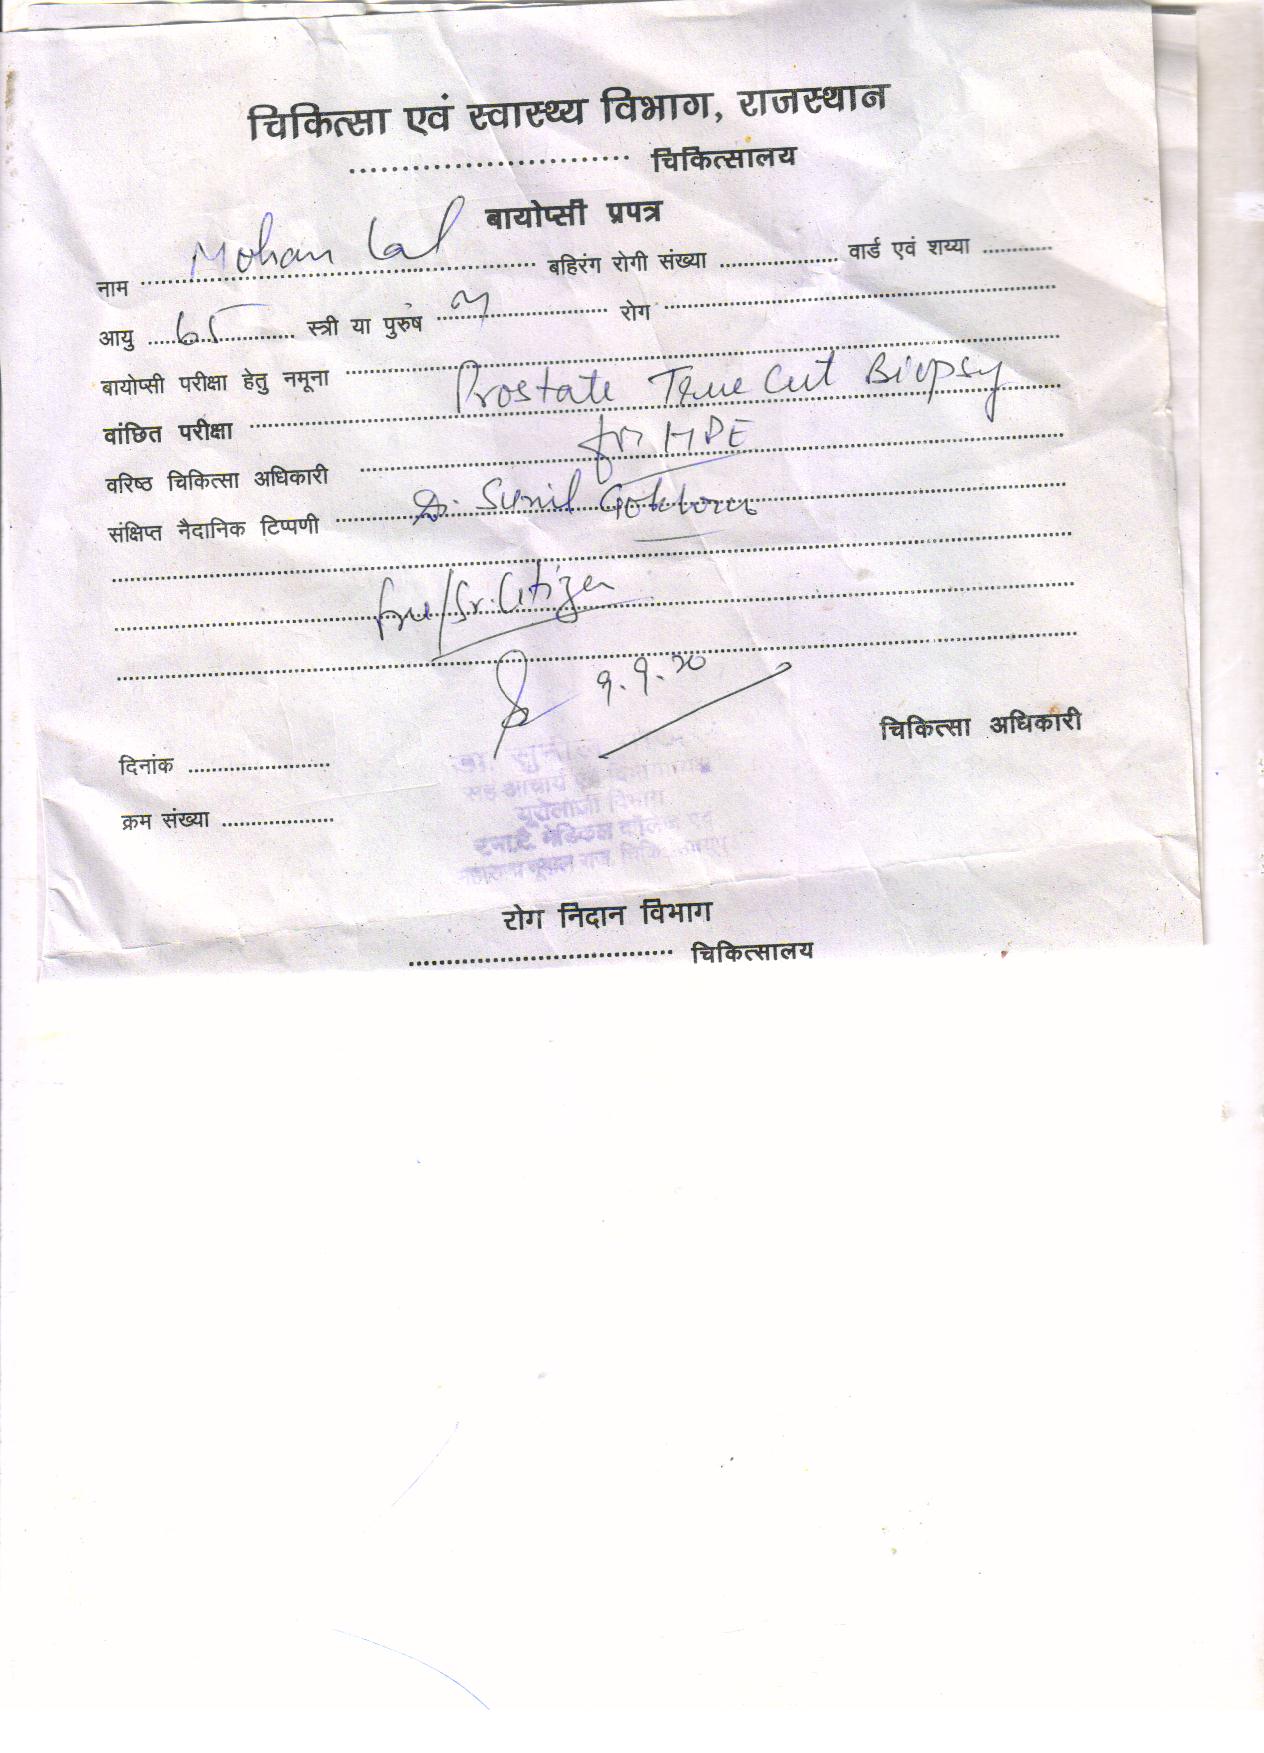 चिकित्सा एवं स्वास्थ्य विभाग, राजस्थान
.............................. चिकित्सालय
बायोप्सी प्रपत्र
नाम Mohan Lal बहिरंग रोगी संख्या .................... वार्ड एवं शय्या ............
आयु 65 स्त्री या पुरुष M रोग
बायोप्सी परीक्षा हेतु नमूना
Prostate True Cut Biopsy
वांछित परीक्षा
for HPE
वरिष्ठ चिकित्सा अधिकारी
संक्षिप्त नैदानिक टिप्पणी Dr. Sunil
free/Sr. Citizen
9.9.20
चिकित्सा अधिकारी
दिनांक ........................
क्रम संख्या ...................
यूरोलॉजी विभाग
मेडिकल कॉलेज एवं
रोग निदान विभाग
.................................. चिकित्सालय